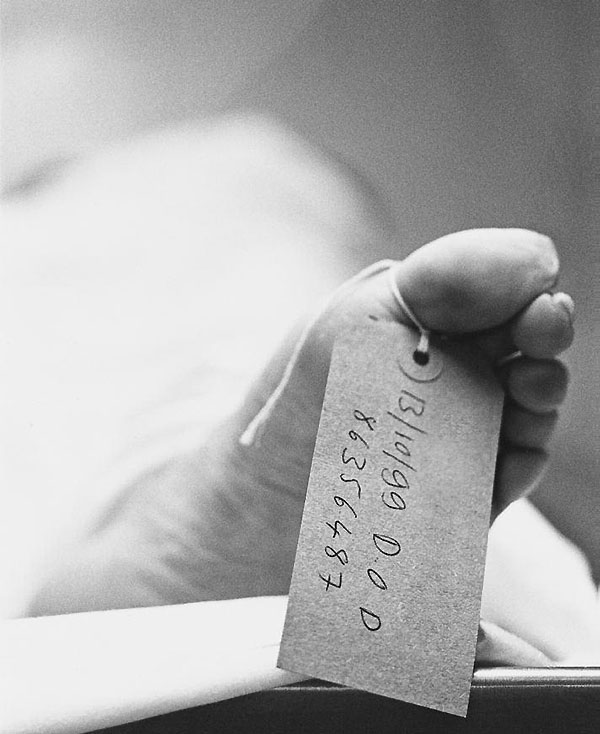 13/10/99 D.O D
86356487